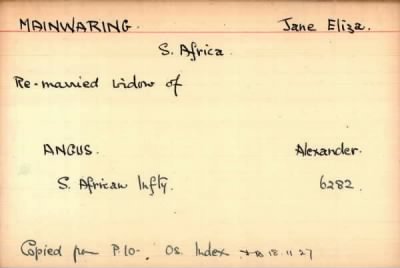 MAINWARING. Jane Eliza.
S. Africa.
Re-married widow of
ANGUS. Alexander.
S. African Infty. 6282.
Copied from P.10-. Os. Index 18.11.27